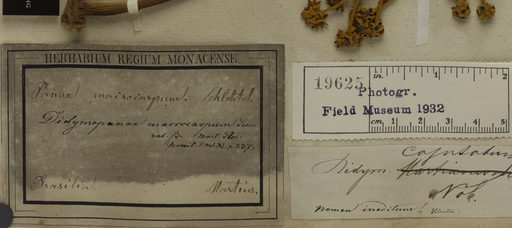 HERBARIUM REGIUM MONACENSE.
Panax macrocarpum. Schlchtdl.
Didymopanax macrocarpum
var. β. Mart. Flor.
Brasil. Vol. XI. p. 237.
Brasilia. Martius.
19625
Photogr.
Field Museum 1932
in. 1 2
cm. 1 2 3 4 5
Capitatum
Didym. Martianum
Nob.
nomen ineditum!